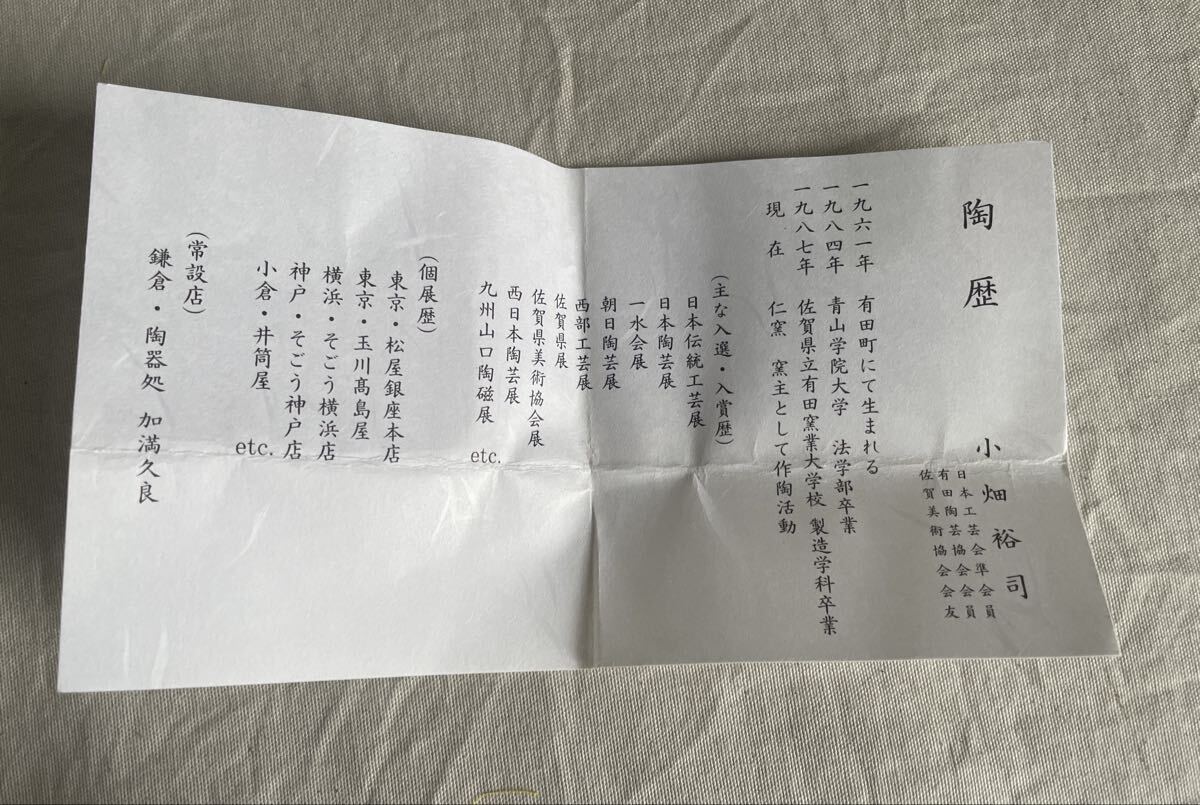 陶歴 小畑裕司
日本工芸会準会員
有田陶芸協会会員
佐賀美術協会会友
一九六一年 有田町にて生まれる
一九八四年 青山学院大学 法学部卒業
一九八七年 佐賀県立有田窯業大学校 製造学科卒業
現在 仁窯 窯主として作陶活動
(主な入選・入賞歴)
日本伝統工芸展
日本陶芸展
一水会展
朝日陶芸展
西部工芸展
佐賀県展
佐賀県美術協会展
西日本陶芸展
九州山口陶磁展 etc.
(個展歴)
東京・松屋銀座本店
東京・玉川髙島屋
横浜・そごう横浜店
神戸・そごう神戸店
小倉・井筒屋 etc.
(常設店)
鎌倉・陶器処 加満久良